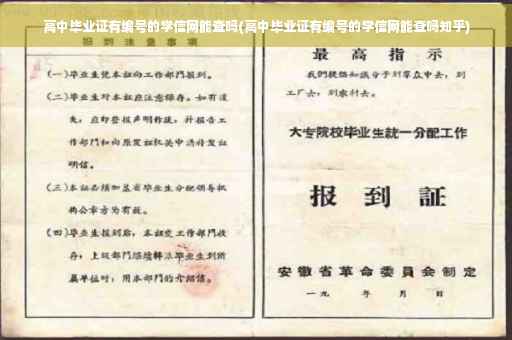 高中毕业证有编号的学信网能查吗(高中毕业证有编号的学信网能查吗知乎)
报到注意事项
(一)毕业生凭本证向工作部门报到。
(二)毕业生对本证应注意保存。如有遗
失,应即登报声明作废,并报告工
作部门和向原发证机关申请补发证
明信。
(三)本证必须加盖省毕业生分配领导机
构公章方为有效。
(四)毕业生报到后,本证交工作部门收
存;上级部门
毕业生到所
属单位时,用本部门的介绍信。
最高指示
我们提倡知识分子到群众中去,到
工厂去,到农村去。
大专院校毕业生統一分配工作
报到証
安徽省革命委員会制定
一九 年 月 日